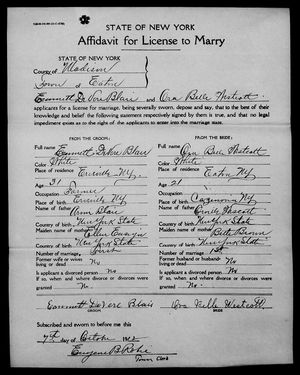 STATE OF NEW YORK
Affidavit for License to Marry
STATE OF NEW YORK
County of Madison
Town of Eaton
Emmett De Vere Blair and Ora Belle Westcott
applicants for a license for marriage, being severally sworn, depose and say, that to the best of their
knowledge and belief the following statement respectively signed by them is true, and that no legal
impediment exists as to the right of the applicants to enter into the marriage state.
FROM THE GROOM:
Full name Emmett DeVere Blair
Color White
Place of residence Erieville N.Y.
Age 31
Occupation Farmer
Place of birth Erieville N.Y.
Name of father Blair
New York State
Maiden name of mother Ellen
New York State
Number of marriage, First
Former wife or wives
living or dead No
Is applicant a divorced person No
If so, when and where divorce or divorces were
granted No
FROM THE BRIDE:
Full name Ora Belle Westcott
Color White
Place of residence Eaton N.Y.
Age 21
Occupation
Place of birth Cazenovia N.Y.
Name of father Westcott
New York State
Maiden name of mother Brown
New York State
Number of marriage 1st
Former husband or husbands
living or dead No
Is applicant a divorced person No
If so, when and where divorce or divorces were
granted No
Emmett DeVere Blair
GROOM
Ora Belle Westcott
BRIDE
Subscribed and sworn to before me this
7th day October 1912
Eugene B.
Town Clerk